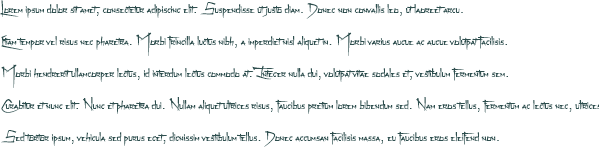 Lorem ipsum dolor sit amet, consectetur adipiscing elit. Suspendisse ut justo diam. Donec non convallis leo, ut laoreet arcu.
Etiam tempor vel risus nec pharetra. Morbi fringilla luctus nibh, a imperdiet nisl aliquet in. Morbi varius augue ac augue volutpat facilisis.
Morbi hendrerit ullamcorper lectus, id interdum lectus commodo at. Integer nulla dui, volutpat vitae sodales et, vestibulum fermentum sem.
Curabitur et nunc elit. Nunc et pharetra dui. Nullam aliquet ultrices risus, faucibus pretium lorem bibendum sed. Nam eros tellus, fermentum ac lectus nec, ultrices
Sed tortor ipsum, vehicula sed purus eget, dignissim vestibulum tellus. Donec accumsan facilisis massa, eu faucibus eros eleifend non.